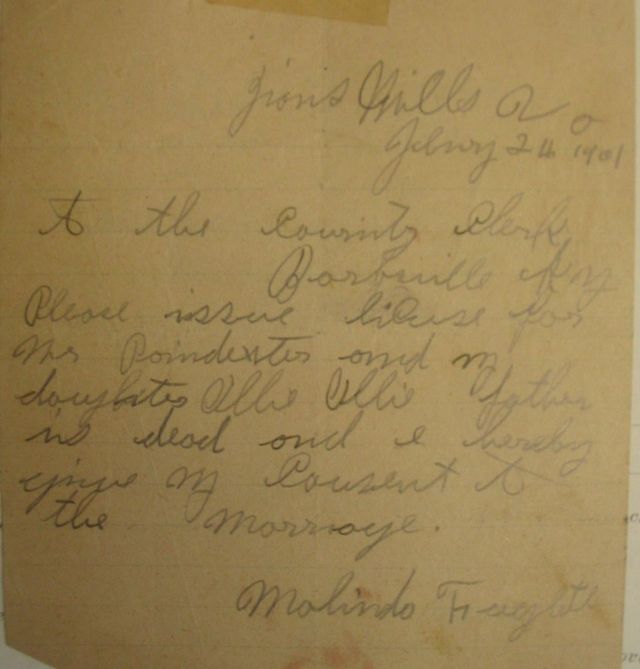 Mills
24 1901
to the County Clerk
Barbville Ky
Please issue license for
Mr Poindexter and my
daughter Ollie Ollie father
is dead and i hereby
give my Consent to
the marriage.
Malinda